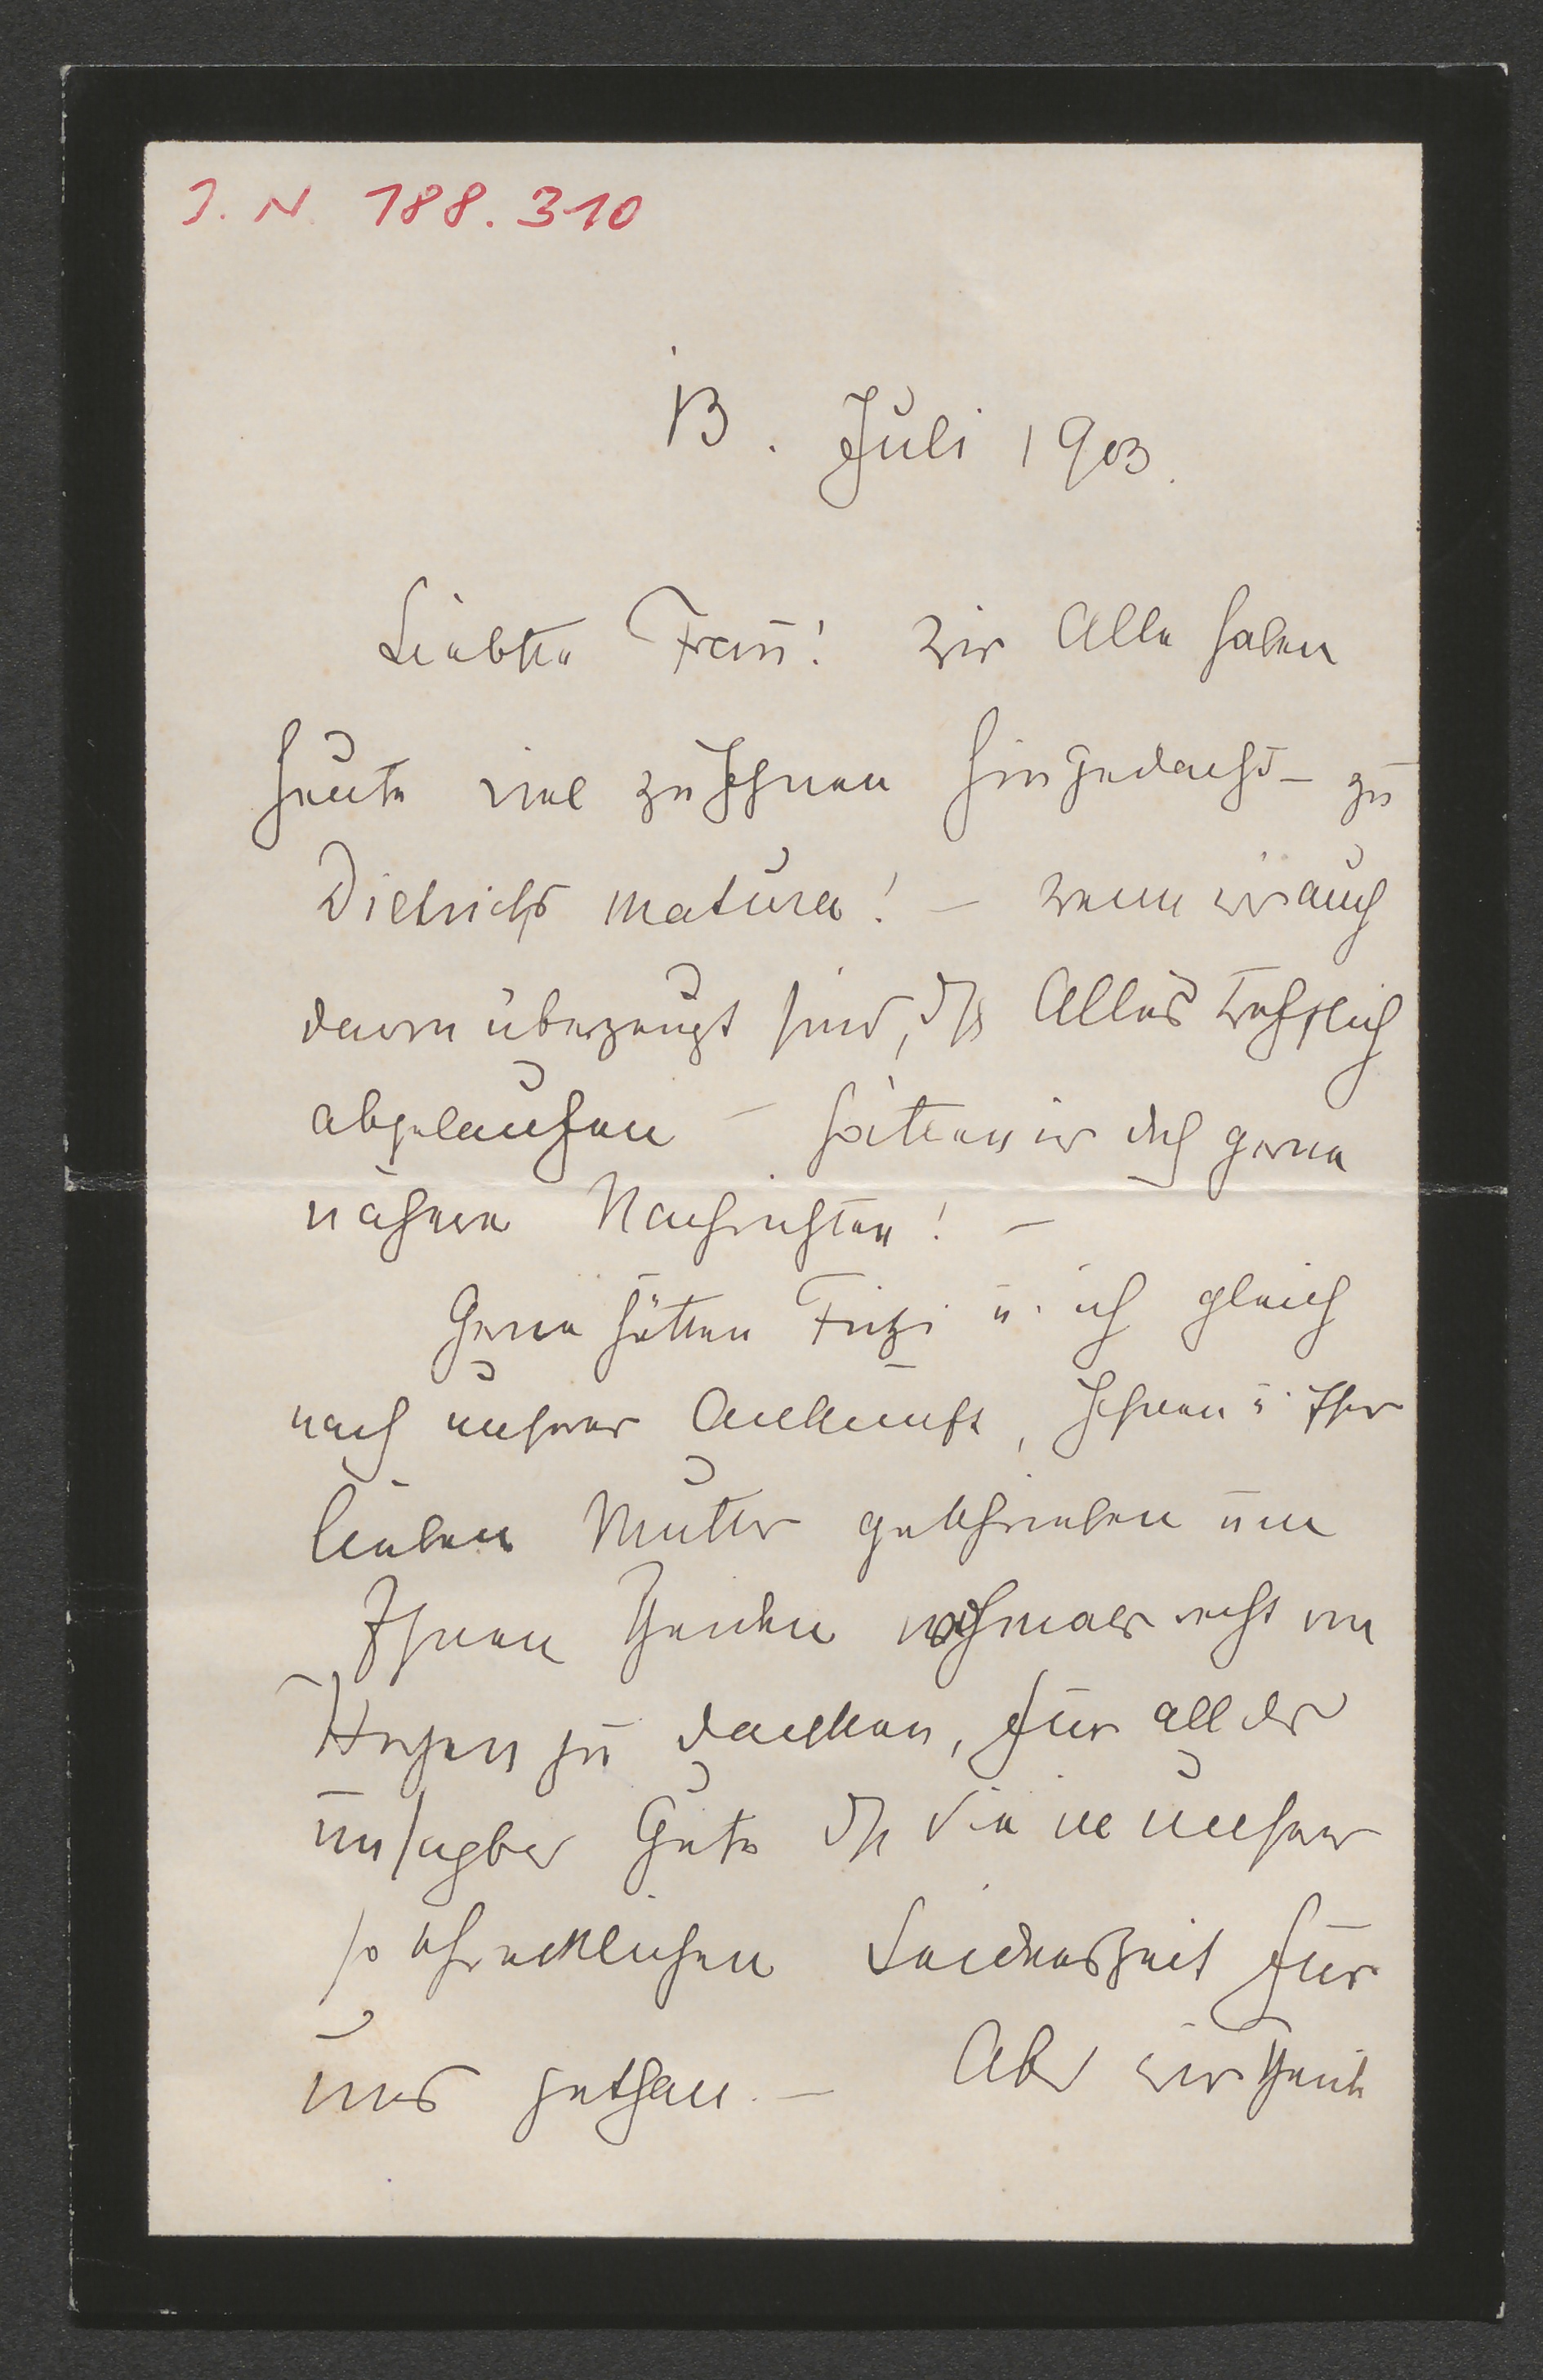 I. N. 188.310
13. Juli 1903.
Liebste Frau! Wir Alle haben
heute viel zu Ihnen hingedacht – zu
Dietrichs Matura! – wenn wir auch
davon überzeugt sind, dß Alles trefflich
abgelaufen – hätten wir doch gerne
nähere Nachrichten! –
Gerne hätten Fritzi u. ich gleich
nach unserer Ankunft, Ihnen u. Ihrer
lieben Mutter geschrieben um
Ihnen Beiden nochmals recht von
Herzen zu danken, für all das
unsagbar Gute dß Sie in unserer
so schrecklichen Leidenszeit für
uns gethan. – Aber wir Beide